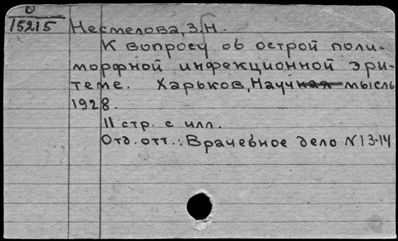 0
15215
Несмелова, З.Н.
К вопросу об острой поли-
морфной инфекционной эри-
теме. Харьков, Научная мысль
1928.
11 стр. с илл.
Отд. отт.: Врачебное дело N 13-14